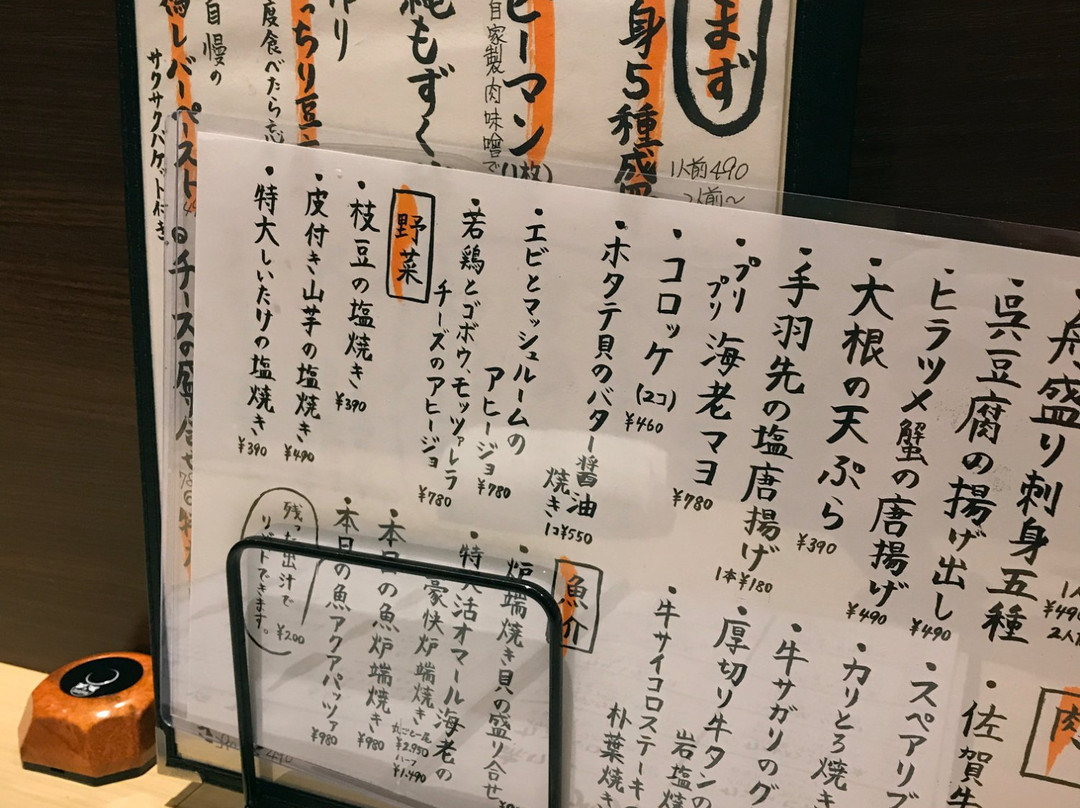 まず
身5種盛
1人前490
2人前〜
ピーマン(1枚)
自家製肉味噌で
縄もずく
っちり豆
度食べたら忘
自慢の
レバーペースト
サクサクバゲット付き
チーズの盛り合せ
舟盛り刺身五種
呉豆腐の揚げ出し
¥490
ヒラツメ蟹の唐揚げ
¥490
大根の天ぷら
¥390
手羽先の塩唐揚げ
1本¥180
プリプリ海老マヨ
¥780
コロッケ(2コ)
¥460
ホタテ貝のバター醤油焼き
1コ¥550
エビとマッシュルームの
アヒージョ
¥780
若鶏とゴボウ、モッツァレラ
チーズのアヒージョ
¥780
野菜
枝豆の塩焼き
¥390
皮付き山芋の塩焼き
¥490
特大しいたけの塩焼き
¥390
肉
佐賀牛
スペアリブ
カリとろ焼
牛サガリのグ
厚切り牛タンの
岩塩焼
牛サイコロステーキ
朴葉焼
魚介
炉端焼き貝の盛り合せ
特大活オマール海老の
豪快炉端焼き
丸ごと一尾
¥2,950
ハーフ
¥1,490
本日の魚炉端焼き
¥980
本日の魚アクアパッツァ
¥980
残った出汁で
リゾットできます。
¥200